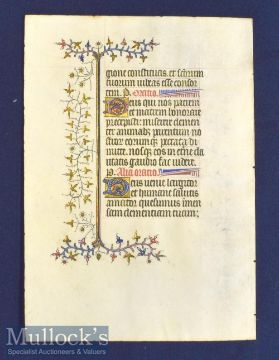 gione constitutis. et sctorum
tuorum iubeas esse consor
tem. P. Oratio.
Deus qui nos patrem
et matrem honorare
precepisti: miserere clemen
ter animabus parentum nos
trorum eorumque peccata di
mitte. nosque eos in eterne cla
ritatis gaudio fac videre. P.
P. Alia oratio.
Deus venie largitor
et humane salutis
amator quesumus inmen
sem clementiam tuam:
Mullock's
Specialist Auctioneers & Valuers